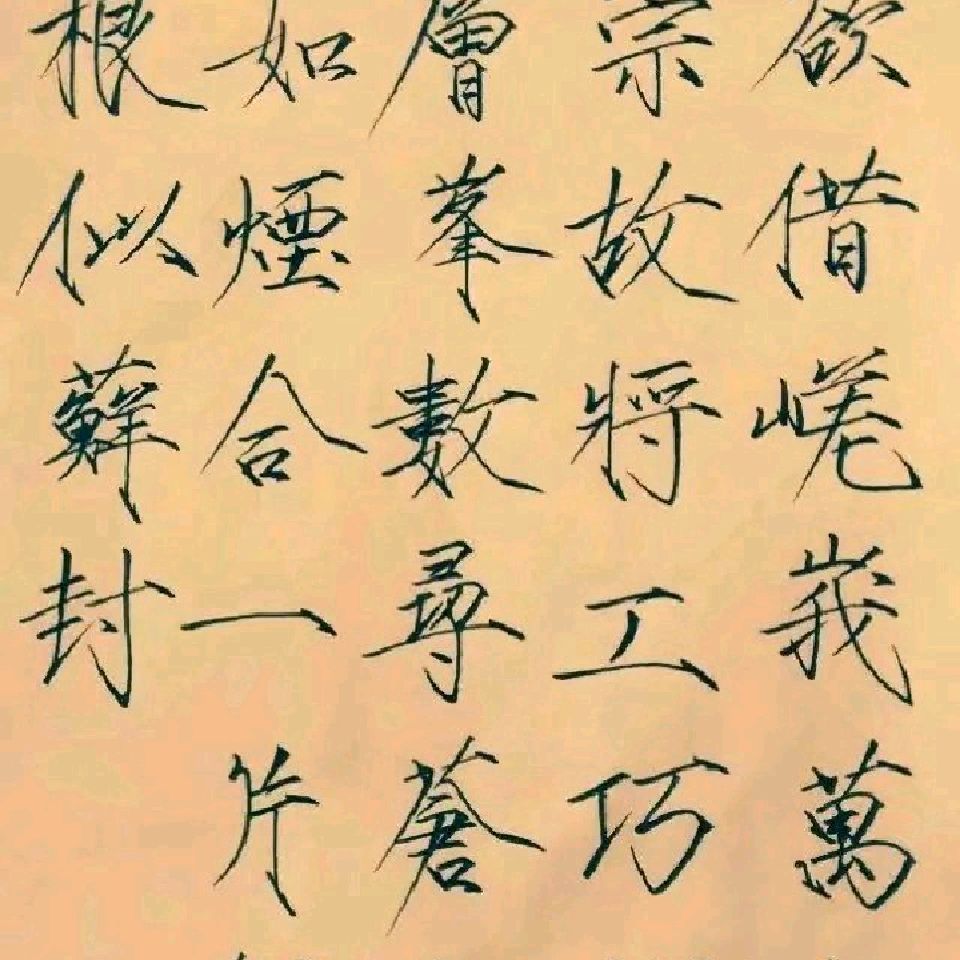 欲借嵯峨萬
崇故將工巧
層峯數尋蒼
如煙合一片
根似蘚封